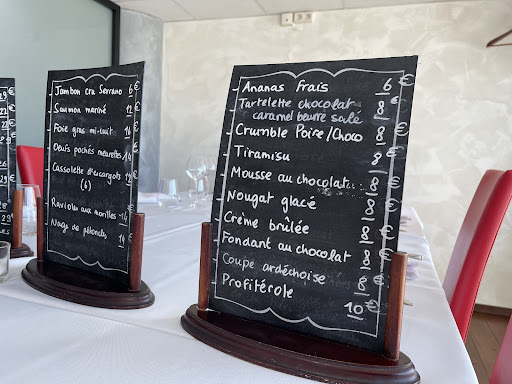 Jambon cru Serrano 8 €
Saumon mariné 12 €
Foie gras mi-cuit 16 €
Oeufs pochés meurettes 14 €
Cassolette d'escargots
(6)
Ravioles aux morilles
Nage de pétoncles 14 €
Ananas Frais 6 €
Tartelette chocolat 8 €
caramel beurre salé
Crumble Poire/Choco 8 €
Tiramisu 8 €
Mousse au chocolat 8 €
Nougat glacé 8 €
Crème brûlée 8 €
Fondant au chocolat 8 €
Coupe ardéchoise 8 €
Profitérole 10 €